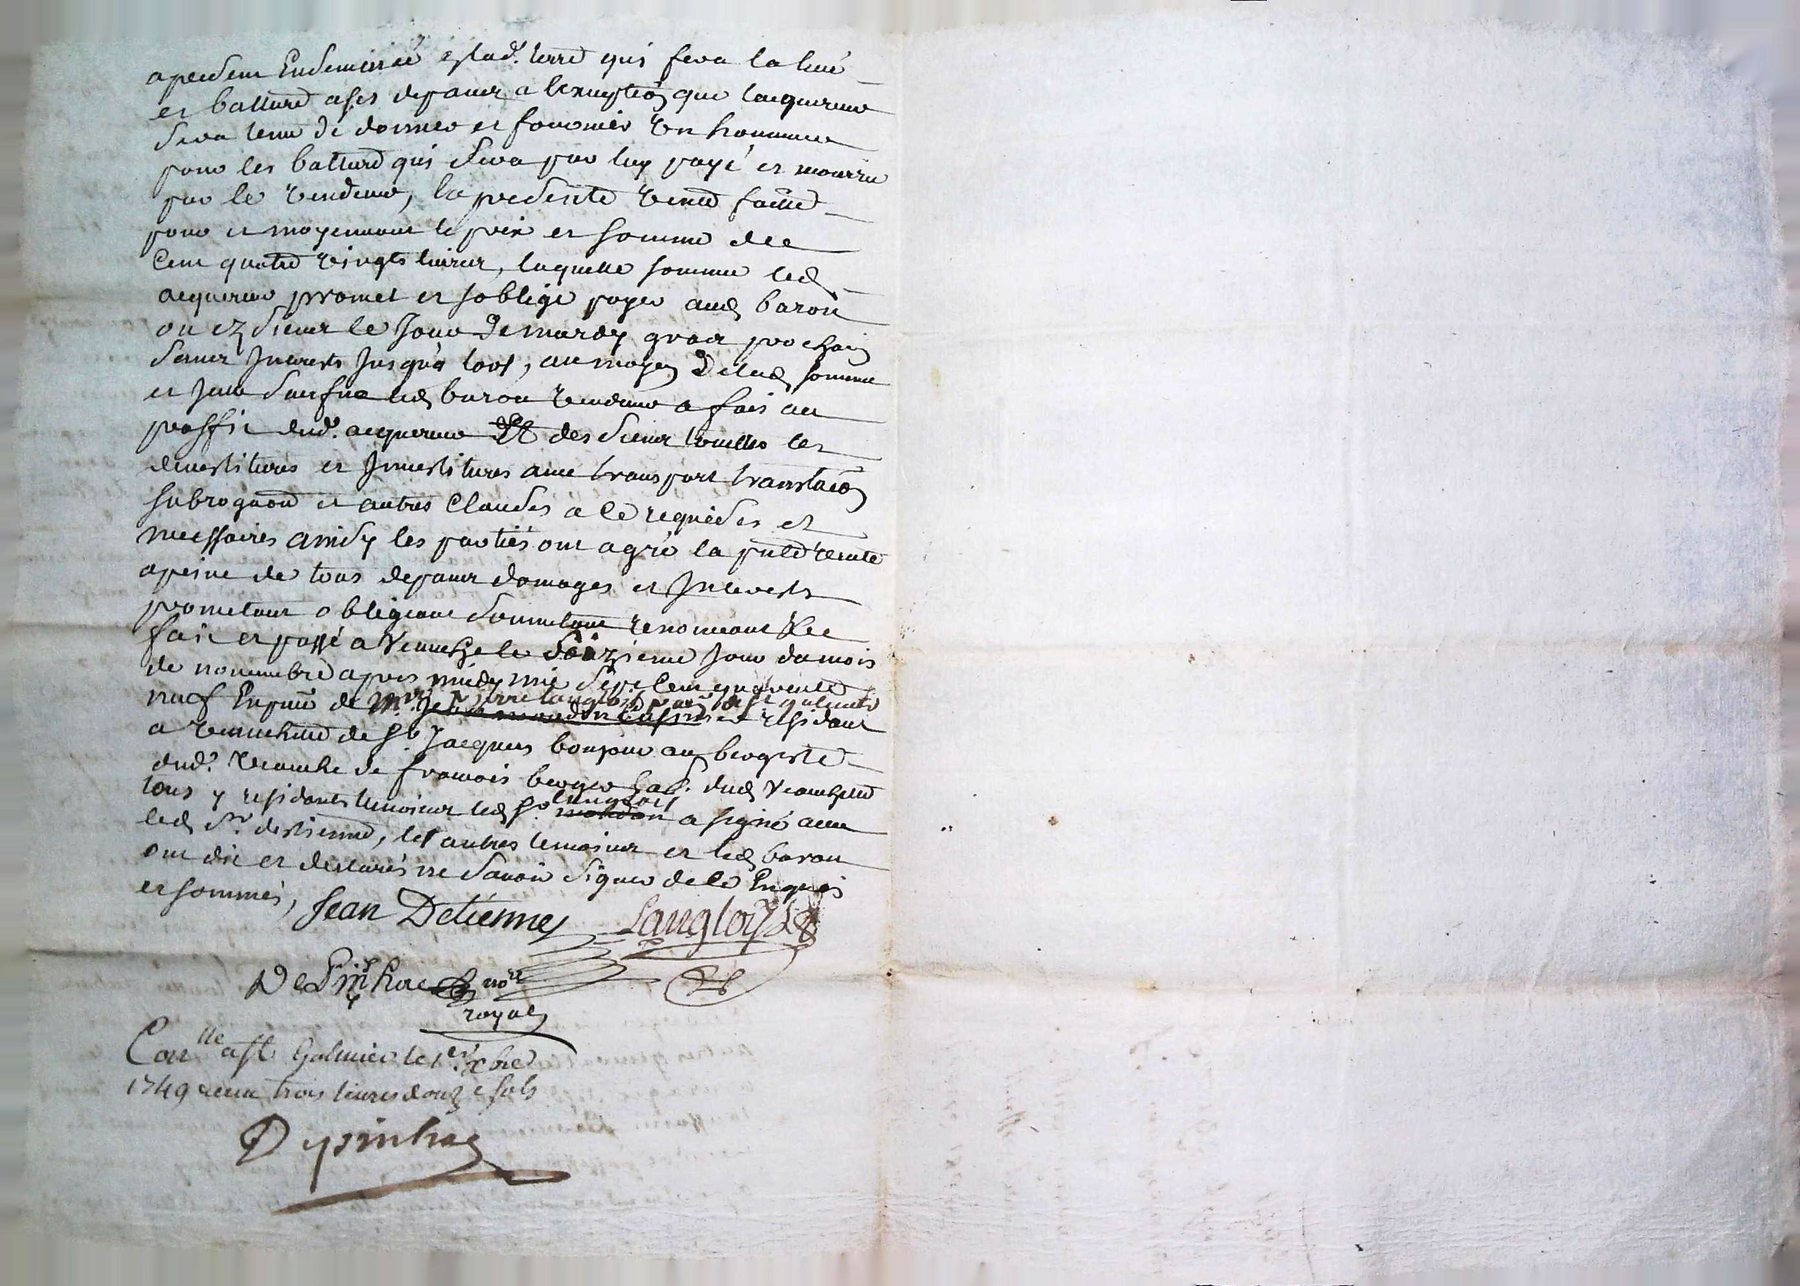 a perdeur Endemisée esd. terre qui fera la levé
et batture a ses depans a lexception que lacquereur
sera tenu de donner et fournir un homme
pour les batture qui sera par luy payé et nourri
par le vendeur, la presente vente faitte
pour et moyennant le prix et somme de
Cent quatre vingts livres, laquelle somme led
acquereur promet et soblige payer aud baron
le Jour de mardy gras prochain
Interests Jusqua lors, au moyen de lad somme
et led baron vendeur a fait au
proffit dud. acquereur des toutes les
devestitures et Investitures avec transport translaon
subrogaon et autres Clauses a ce requises et
necessaires ainsy les parties ont agreé la pnte vente
a peine de tous depans domages et Interests
promettant obligeant soumettant renonceant &ce
fait et passé a Veauche le douzieme Jour du mois
de novembre apres midy mil sept cent quarente
neuf En pnce de pierre langlois de st galmier
residant
a de St Jacques bonjour au
dud. veauche de francois berger dud veauche
tous y residants temoins led Sr langlois a signé avec
led Sr destienne, les autres temoins et led baron
ont dit et declarés ne savoir signer de ce Enquis
et sommés, Jean Detienne Langloys
DeSpinhac nore
royal
Conlle a St Galmier le 1er xbre
1749 receu trois livres douze sols
Despinhac